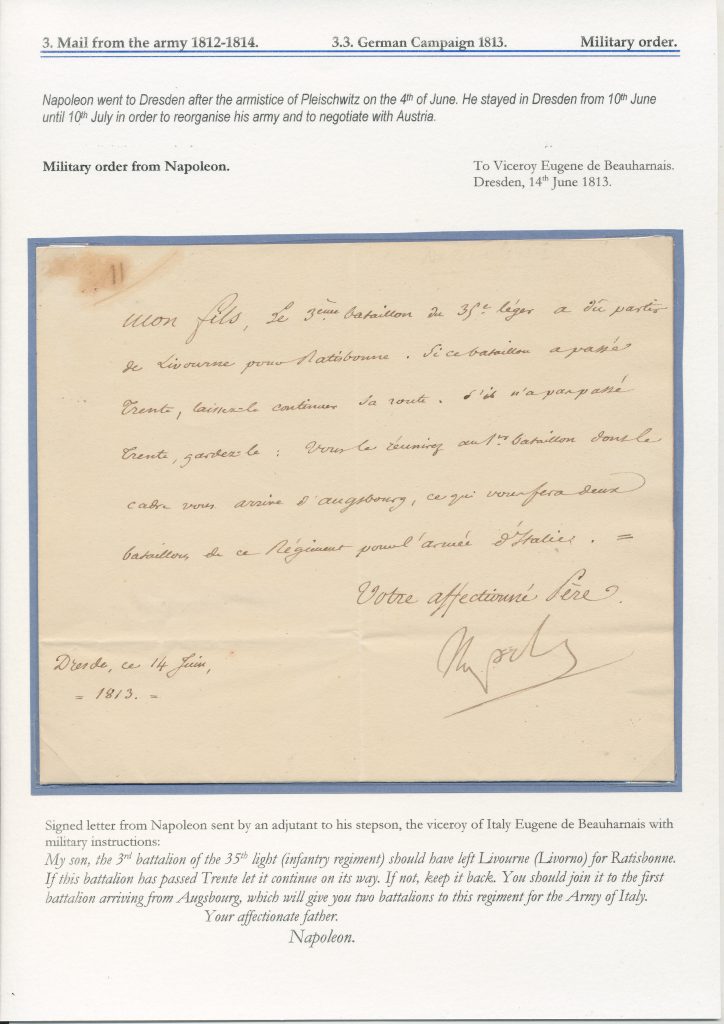 3. Mail from the army 1812-1814. 3.3. German Campaign 1813. Military order.
Napoleon went to Dresden after the armistice of Pleischwitz on the 4th of June. He stayed in Dresden from 10th June
until 10th July in order to reorganise his army and to negotiate with Austria.
Military order from Napoleon.
To Viceroy Eugene de Beauharnais.
Dresden, 14th June 1813.
11
Mon fils, Le 3ème bataillon du 35e léger a dû partir
de Livourne pour Ratisbonne. Si ce bataillon a passé
Trente, laissez-le continuer sa route. S'il n'a pas passé
Trente, gardez le : Vous le réunirez au 1er bataillon dont le
cadre vous arrive d'augsbourg, ce qui vous fera deux
bataillons de ce Régiment pour l'armée d'Italie. =
Votre affectionné Père.
Dresde, ce 14 Juin,
= 1813. =
Signed letter from Napoleon sent by an adjutant to his stepson, the viceroy of Italy Eugene de Beauharnais with
military instructions:
My son, the 3rd battalion of the 35th light (infantry regiment) should have left Livourne (Livorno) for Ratisbonne.
If this battalion has passed Trente let it continue on its way. If not, keep it back. You should join it to the first
battalion arriving from Augsbourg, which will give you two battalions to this regiment for the Army of Italy.
Your affectionate father.
Napoleon.